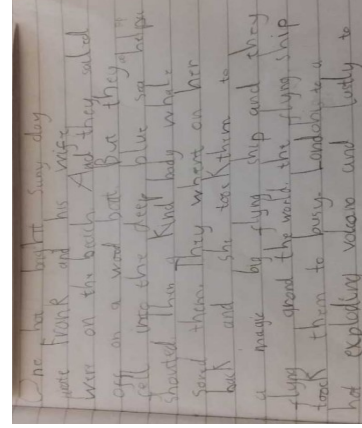 One ha bright Suny day
note Frank and his wife
wire on the beach And they sailed
off on a wood boat But they
fell into the deep blue sea "help"
Shouted Then a Kind body whale
Saved them. They where on her
back and she took them to
a magic big flying ship and they
flying arond the world. the flying ship
toock them to busy London to a
hot exploding volcano and lastly to